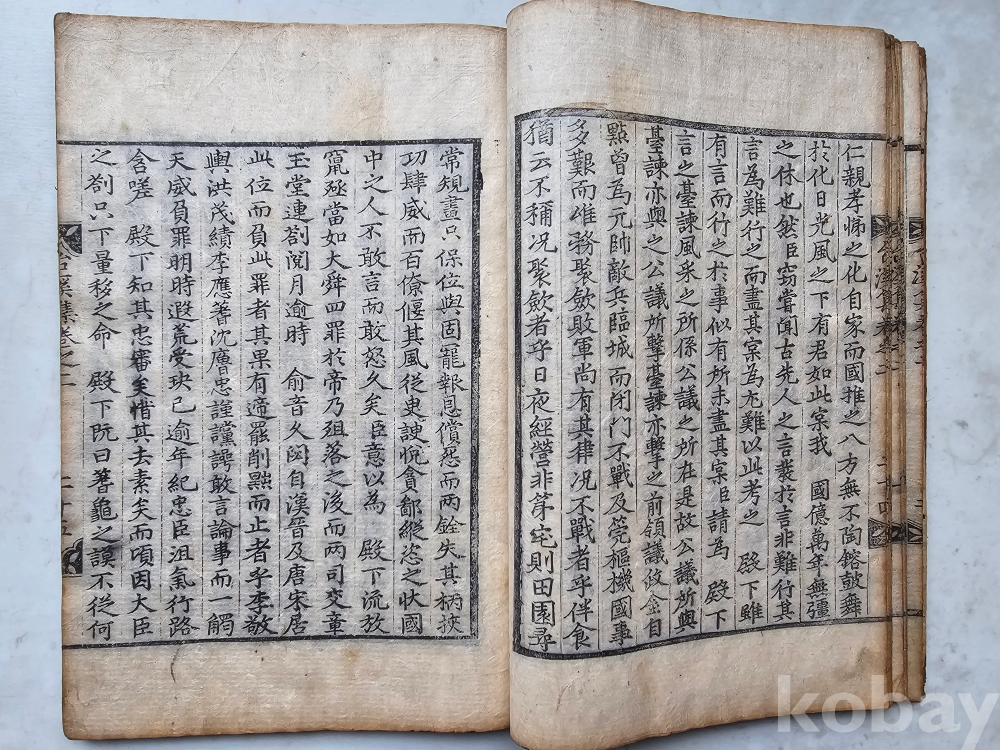 仁親孝悌之化自家而國推之八方無不陶鎔鼓舞
於化日光風之下有君如此宗我 國億萬年無彊
之休也然臣竊嘗聞古先人之言裁於言非難行其
言爲難行之而盡其宗爲尤難以此考之 殿下雖
有言而行之於事似有所未盡其宗臣請爲 殿下
言之臺諫風采之所係公議之所在是故公議所與
臺諫亦與之公議所擊臺諫亦擊之前領議政金自
點曾爲元帥敵兵臨城而閉門不戰及筦樞機國事
多艱而唯務聚歛敗軍尚有其律况不戰者乎伴食
猶云不稱况聚歛者乎日夜經營非第宅則田園尋
常規畫只保位與固寵報㤙償惡而兩銓失其柄挾
功肆威而百僚偃其風從史諛悅貪鄙縱恣之狀國
中之人不敢言而敢怒久矣臣意以爲 殿下流放
竄殛當如大舜四罪於帝乃殂落之後而兩司交章
玉堂連劄閱月逾時 俞音久閟自漢晉及唐宋居
此位而負此罪者其果有遆罷削黜而止者乎李敬
輿洪茂績李應蓍沈𢋡忠謹讜諤敢言論事而一觸
天威負罪明時遐荒受玦已逾年紀忠臣沮氣行路
含嗟 殿下知其忠審矣惜其去素矣而頃因大臣
之劄只下量移之命 殿下旣曰蓍龜之謨不從何
台溪集卷之二
二十五
kobay